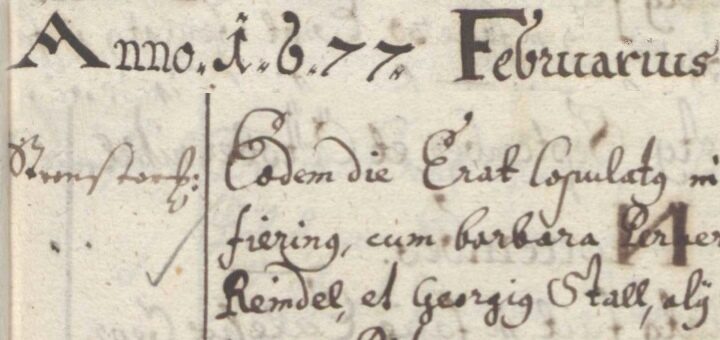 Anno. 1. 6. 77. Februarius
Eodem die Erat Copulatg
fiering, cum barbara Perner
Reindel, et Georgig Stall, alÿ